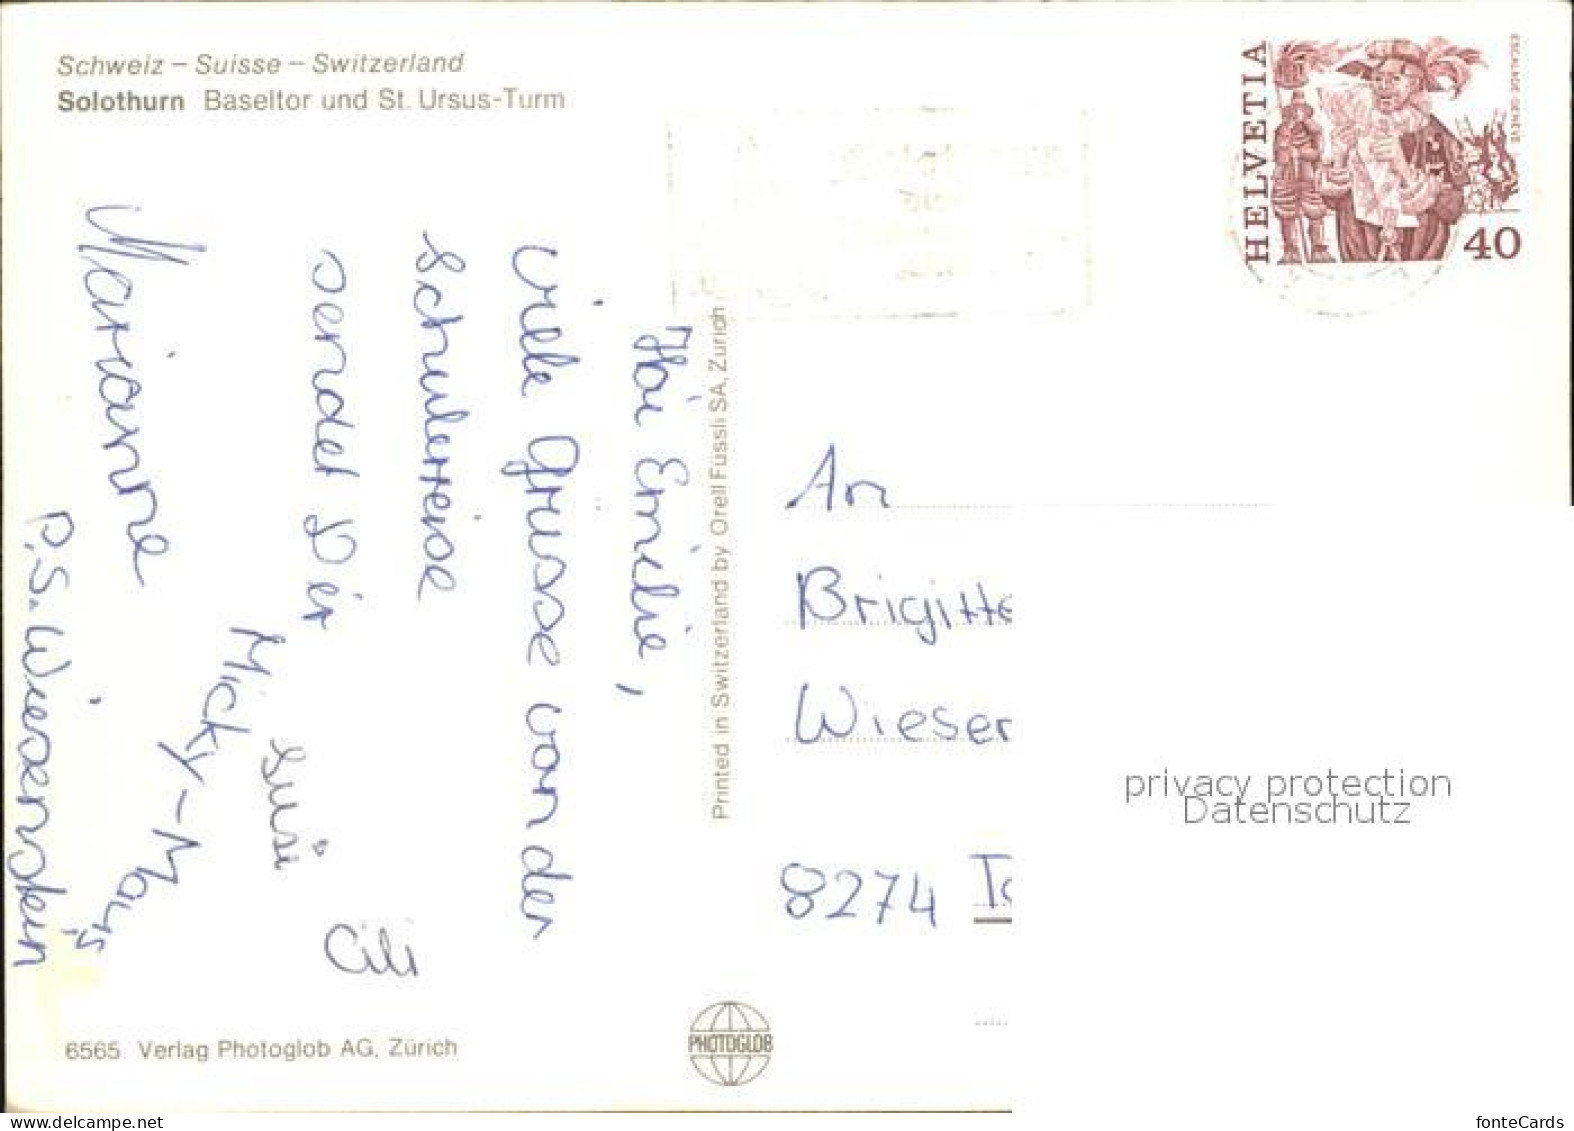 Schweiz – Suisse – Switzerland
Solothurn Baseltor und St. Ursus-Turm
HELVETIA
ESCALADE GENEVE
40
Hoi Emilie,
viele Grüsse von der
Schulerreise
sendet Dir
Marianne
Micky-Maus
Susi
Cili
P.S. Wiesendern
Printed in Switzerland by Orell Füssli SA, Zürich
An
Brigitte
Wieser
8274
privacy protection
Datenschutz
PHOTOGLOB
6565 Verlag Photoglob AG, Zürich
www.delcampe.net
fonteCards